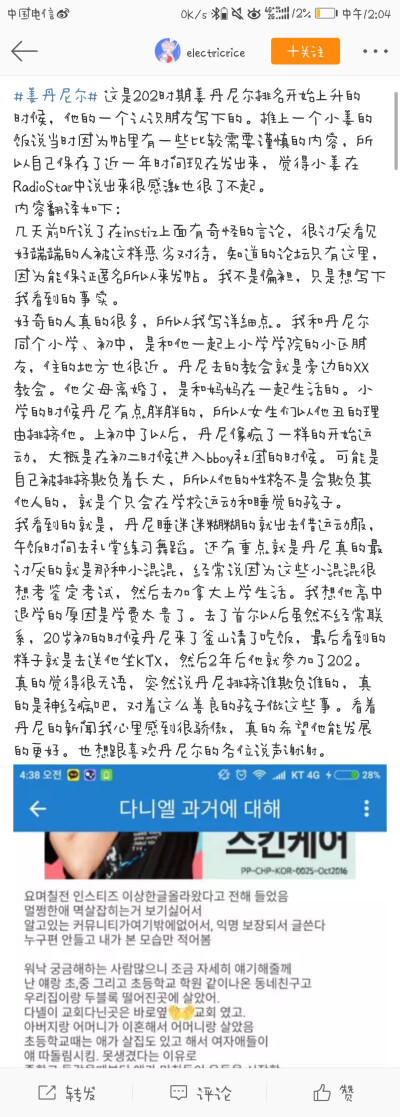 中国电信
0K/s 4G 2G 12% 中午12:04
electricrice
+关注
#姜丹尼尔# 这是202时期姜丹尼尔排名开始上升的
时候，他的一个认识朋友写下的。推上一个小姜的
饭说当时因为帖里有一些比较需要谨慎的内容，所
以自己保存了近一年时间现在发出来，觉得小姜在
RadioStar中说出来很感激也很了不起。
内容翻译如下：
几天前听说了在instiz上面有奇怪的言论，很讨厌看见
好端端的人被这样恶劣对待，知道的论坛只有这里，
因为能保证匿名所以来发帖。我不是偏袒，只是想写下
我看到的事实。
好奇的人真的很多，所以我写详细点。我和丹尼尔
同个小学、初中，是和他一起上小学学院的小区朋
友，住的地方也很近。丹尼去的教会就是旁边的XX
教会。他父母离婚了，是和妈妈在一起生活的。小
学的时候丹尼有点胖胖的，所以女生们以他丑的理
由排挤他。上初中了以后，丹尼像疯了一样的开始运
动，大概是在初二时候进入bboy社团的时候。可能是
自己被排挤欺负着长大，所以他的性格不是会欺负其
他人的，就是个只会在学校运动和睡觉的孩子。
我看到的就是，丹尼睡迷迷糊糊的就出去借运动服，
午饭时间去礼堂练习舞蹈。还有重点就是丹尼真的最
讨厌的就是那种小混混，经常说因为这些小混混很
想考鉴定考试，然后去加拿大上学生活。我想他高中
退学的原因是学费太贵了。去了首尔以后虽然不经常联
系，20岁初的时候丹尼来了釜山请了吃饭，最后看到的
样子就是去送他坐KTX，然后2年后他就参加了202。
真的觉得很无语，突然说丹尼排挤谁欺负谁的，真
的是神经病吧，对着这么善良的孩子做这些事。看着
丹尼的新闻我心里感到很骄傲，真的希望他能发展
的更好。也想跟喜欢丹尼尔的各位说声谢谢。
4:38 오전 KT 4G 28%
다니엘 과거에 대해
스킨케어
PP-CHP-KOR-0025-Oct2016
요며칠전 인스티즈 이상한글올라왔다고 전해 들었음
멀쩡한애 멱살잡히는거 보기싫어서
알고있는 커뮤니티가여기밖에없어서, 익명 보장되서 글쓴다
누구편 안들고 내가 본 모습만 적어봄
워낙 궁금해하는 사람많으니 조금 자세히 얘기해줄께
난 얘랑 초,중 그리고 초등학교 학원 같이나온 동네친구고
우리집이랑 두블록 떨어진곳에 살았어.
다넬이 교회다닌곳은 바로옆 교회 였고.
아버지랑 어머니가 이혼해서 어머니랑 살았음
초등학교때는 얘가 살집도 있고 해서 여자애들이
얘 따돌림시킴. 못생겼다는 이유로
转发
评论
赞